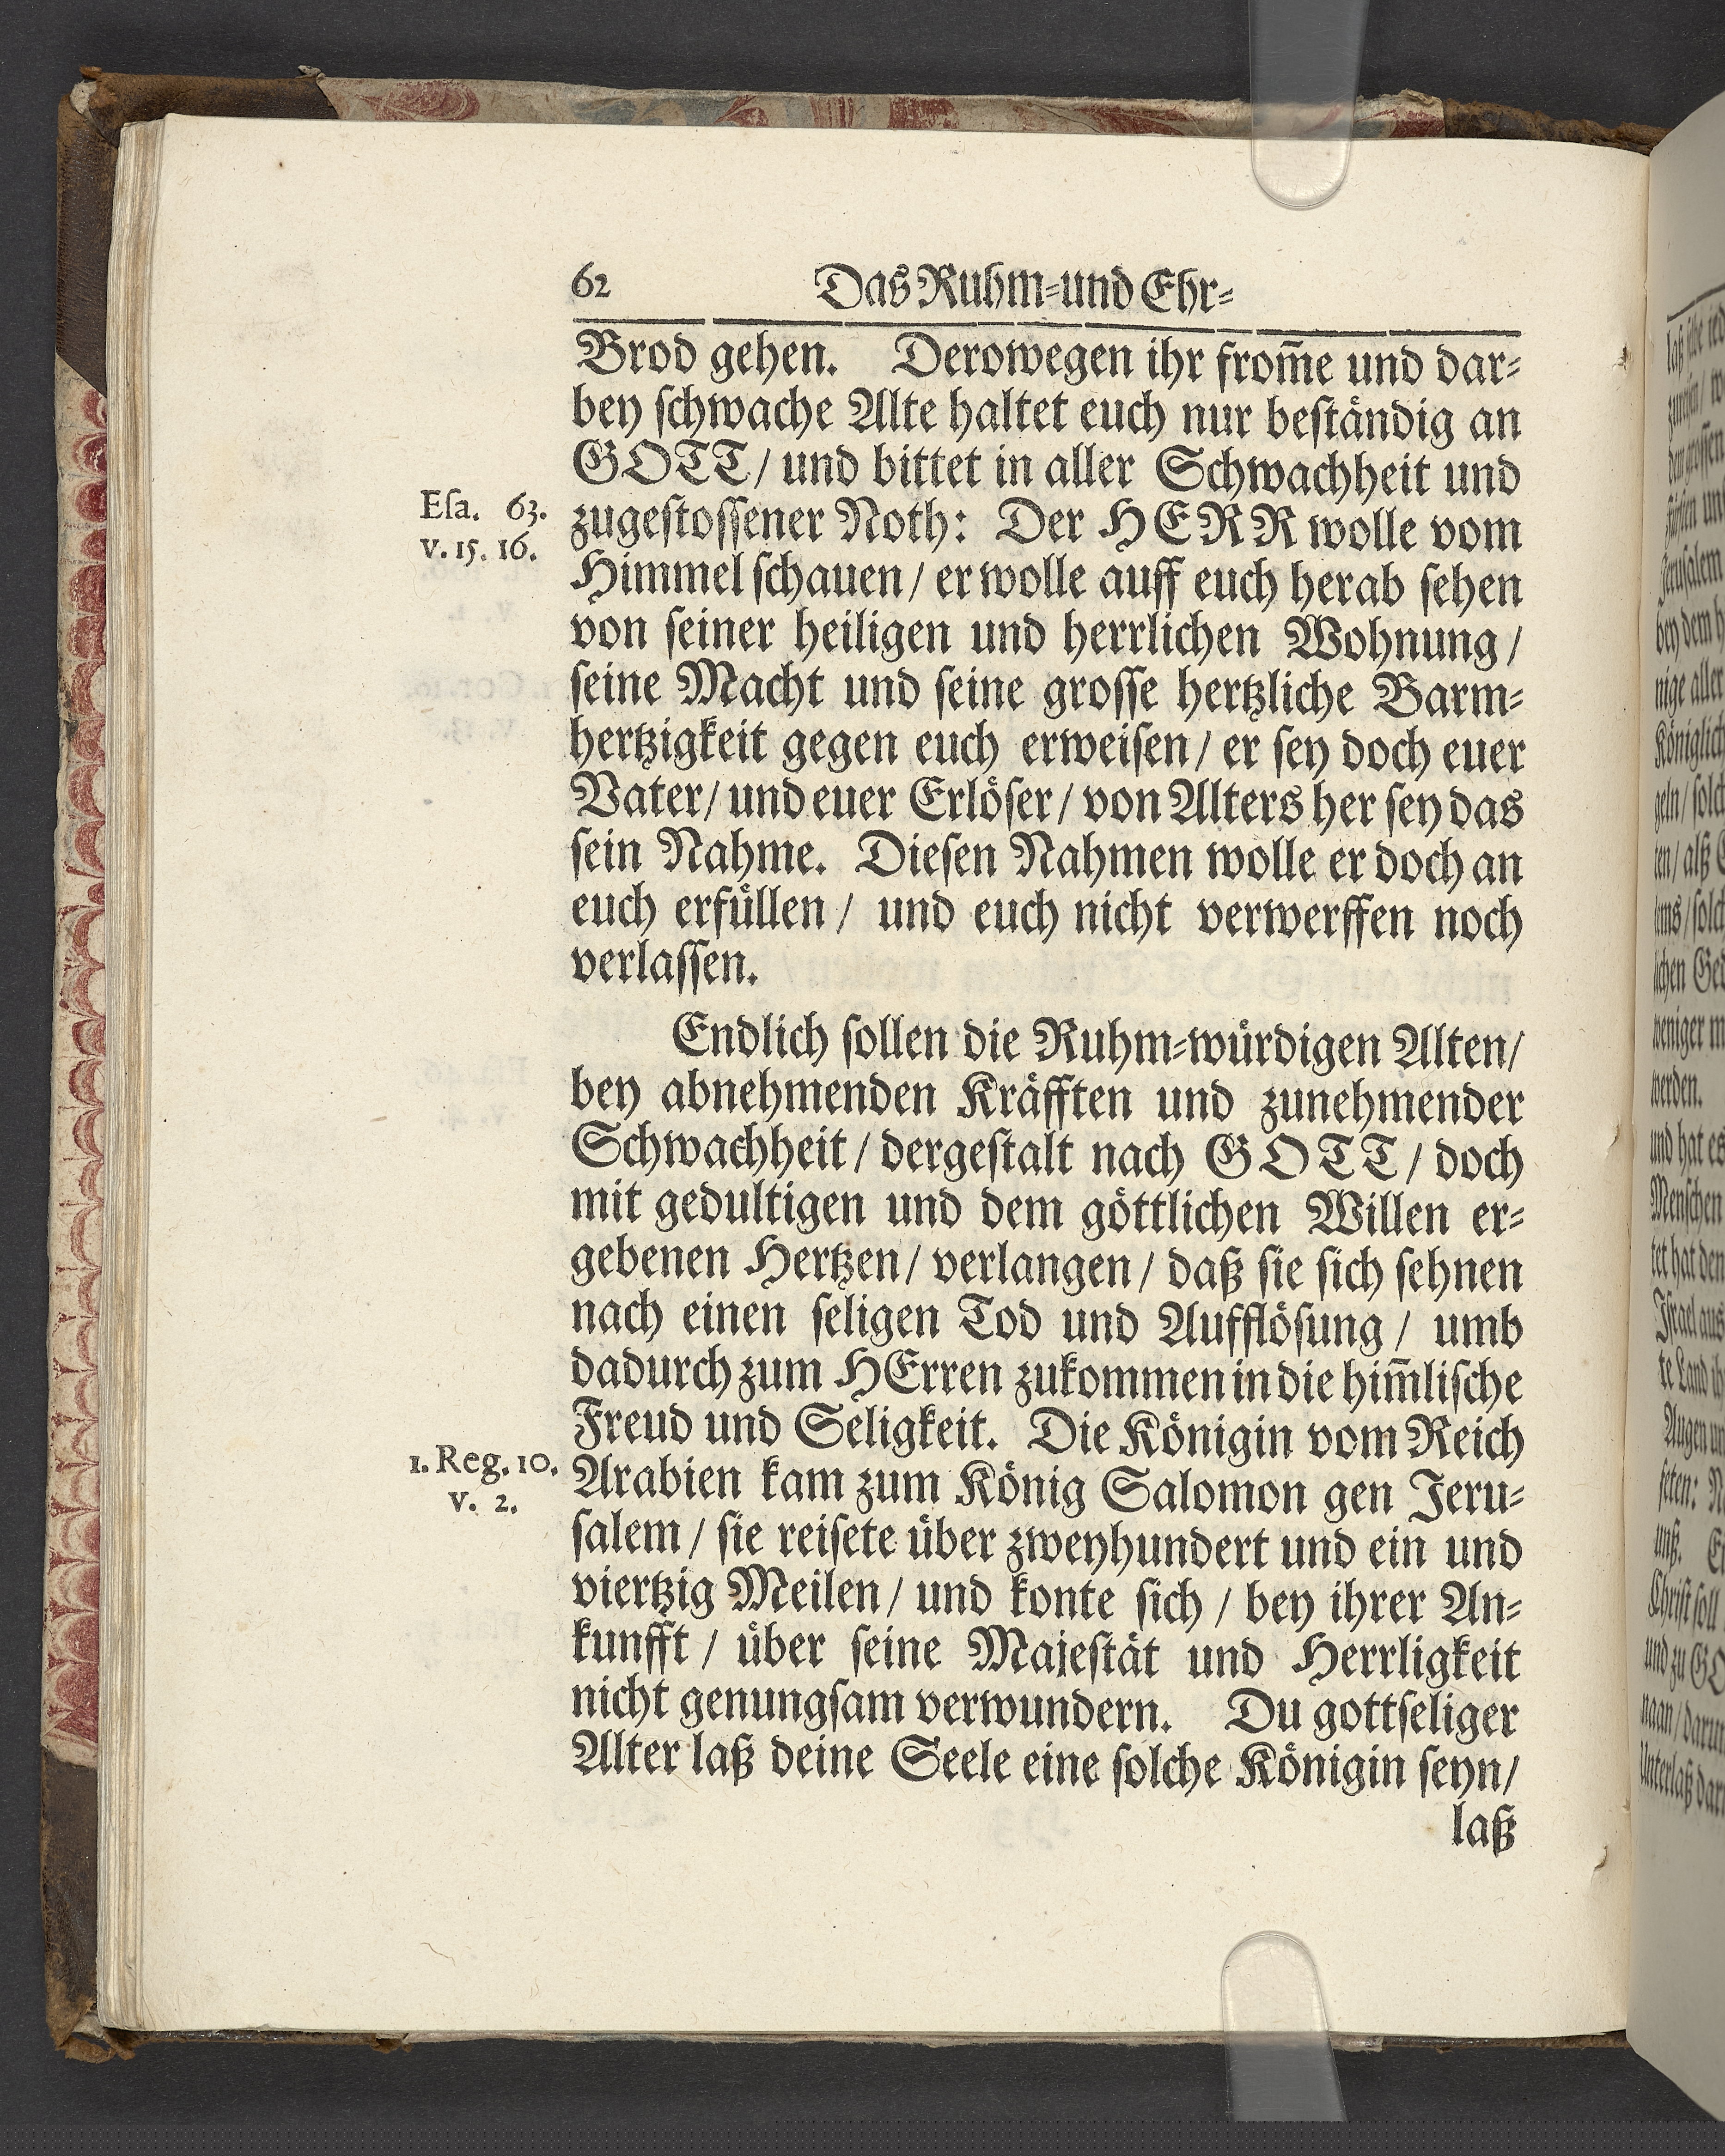 62 Das Ruhm-und Ehr-
Brod gehen. Derowegen ihr from̃e und dar-
bey schwache Alte haltet euch nur beständig an
GOTT/ und bittet in aller Schwachheit und
Esa. 63.
v. 15. 16.
zugestossener Noth: Der HERR wolle vom
Himmel schauen/ er wolle auff euch herab sehen
von seiner heiligen und herrlichen Wohnung/
seine Macht und seine grosse hertzliche Barm-
hertzigkeit gegen euch erweisen/ er sey doch euer
Vater/ und euer Erlöser/ von Alters her sey das
sein Nahme. Diesen Nahmen wolle er doch an
euch erfüllen/ und euch nicht verwerffen noch
verlassen.
Endlich sollen die Ruhm-würdigen Alten/
bey abnehmenden Kräfften und zunehmender
Schwachheit/ dergestalt nach GOTT/ doch
mit gedultigen und dem göttlichen Willen er-
gebenen Hertzen/ verlangen/ daß sie sich sehnen
nach einen seligen Tod und Aufflösung/ umb
dadurch zum HErren zukommen in die him̃lische
Freud und Seligkeit. Die Königin vom Reich
1. Reg. 10.
v. 2.
Arabien kam zum König Salomon gen Jeru-
salem/ sie reisete über zweyhundert und ein und
viertzig Meilen/ und konte sich/ bey ihrer An-
kunfft/ über seine Majestät und Herrligkeit
nicht genungsam verwundern. Du gottseliger
Alter laß deine Seele eine solche Königin seyn/
laß